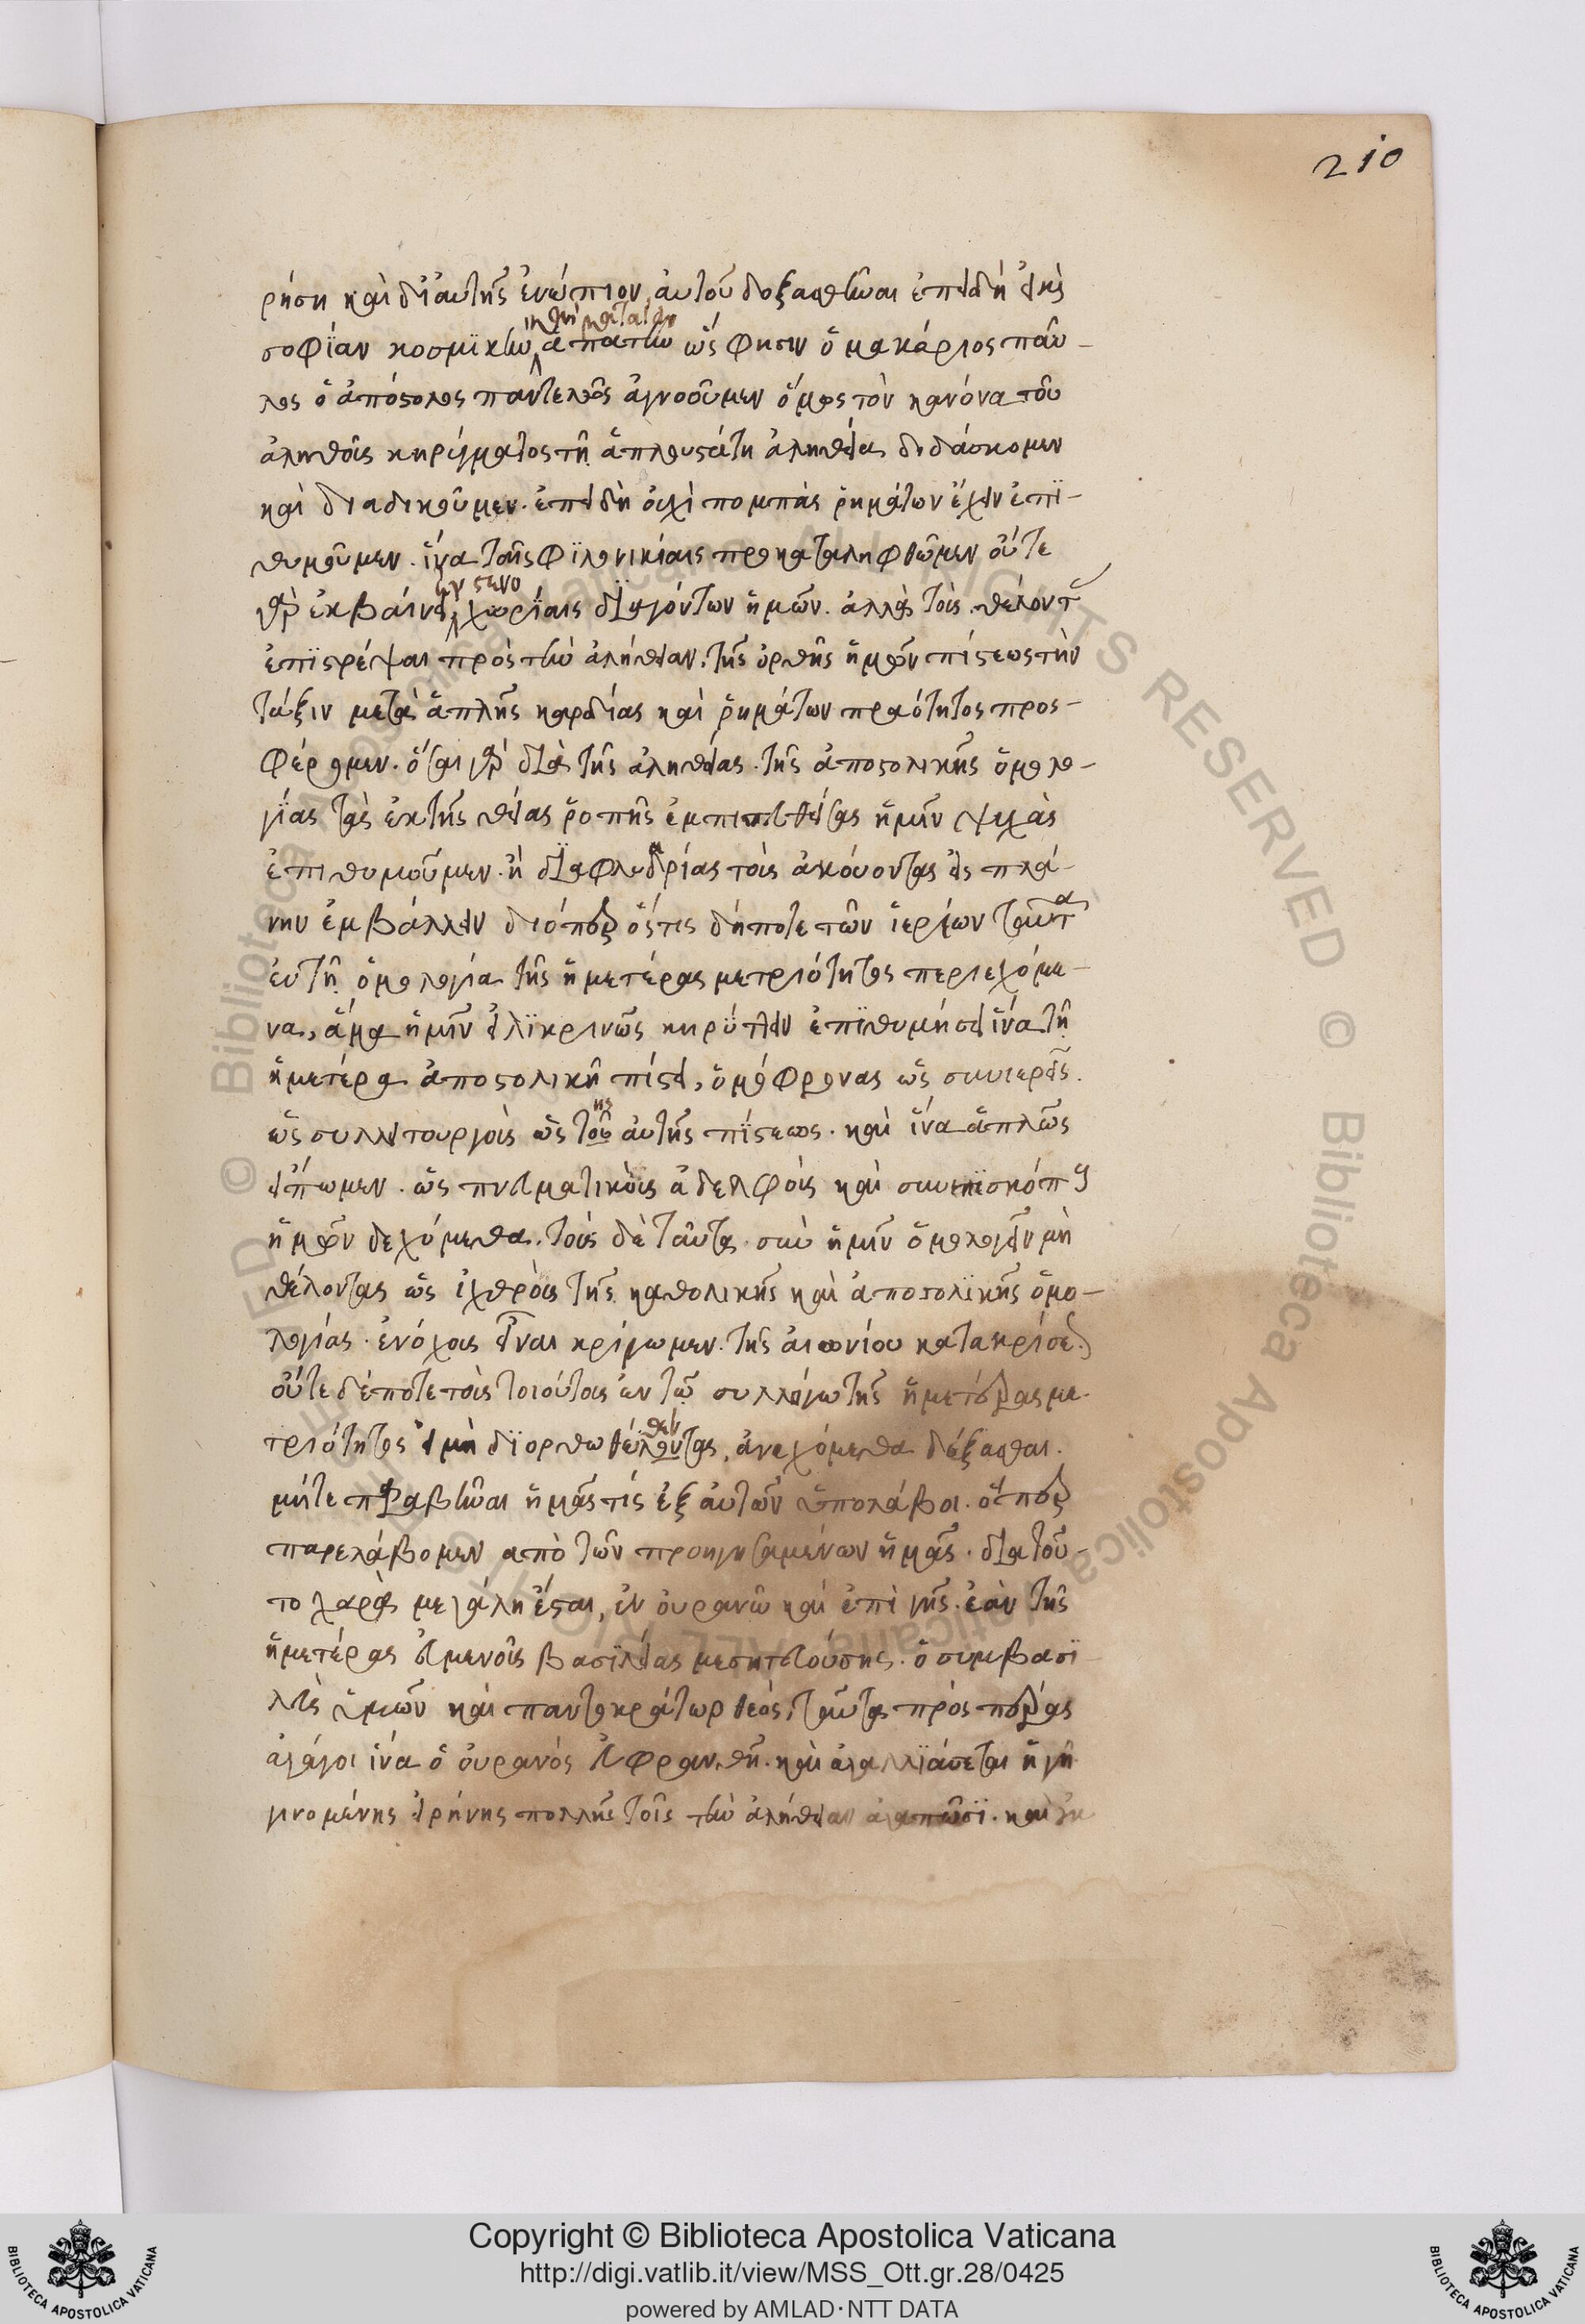 210
ρήση καὶ δι' αυτῆς ἐνώπιον αὐτοῦ δοξασθῆναι ἐπειδὴ εἰ κὶ
σοφίαν κοσμϊκὴν ἀπατὴν ὥς φησιν ὁ μακάριος παῦ-
λος ὁ ἀπόστολος παντελῶς ἀγνοοῦμεν ὅμως τὸν κανόνα τοῦ
ἀληθοῦς κηρύγματος τῆ ἁπλουστάτη ἀληθεία διδάσκομεν
καὶ διαδικοῦμεν. ἐπειδὴ οὐχὶ πομπὰς ῥημάτων ἔχειν ἐπϊ-
θυμοῦμεν. ἵνα ταῖς φϊλονικίαις προκαταληφθῶμεν οὔτε
γὰρ ἐκβαίνει χωρίαις διαγόντων ἡμῶν. ἀλλὰ τοὺς θέλοντ
ἐπϊστρέψαι πρὸς τὴν ἀλήθειαν. τῆς ὀρθῆς ἡμῶν πίστεως τὴν
τάξιν μετὰ ἁπλῆς καρδίας καὶ ῥημάτων πραότητος προς-
φέρομεν. ὅται γὰρ διὰ τῆς ἀληθείας. τῆς ἀποστολικῆς ὁμολο-
γίας τὰς ἐκ τῆς θείας ῥοπῆς ἐμπιστευθείσας ἡμῖν ψυχὰς
ἐπιθυμοῦμεν. ἢ διὰ φλυαρίας τοὺς ἀκούοντας εἰς πλά-
νην ἐμβάλλειν διόπερ ὅστις δήποτε τῶν ἱερέων ταῦτα
ἐν τῆ ὁμολογία τῆς ἡμετέρας μετριότητος περιεχόμε-
να, ἅμα ἡμῖν εἰλϊκρινῶς κηρύττειν ἐπϊθυμήσει ἵνα τῆ
ἡμετέρα ἀποστολικῆ πίστει, ὁμόφρονας ὡς συνιερεῖς.
ὡς συλλειτουργοὺς ὡς τοῦ αὐτῆς πίστεως. καὶ ἵνα ἁπλῶς
εἴπωμεν. ὡς πνευματικοὺς ἀδελφοὺς καὶ συνεπϊσκόπους
ἡμῶν δεχόμεθα. τοὺς δὲ ταῦτα σὺν ἡμῖν ὁμολογεῖν μὴ
θέλοντας ὡς ἐχθροὺς τῆς καθολικῆς καὶ ἀποστολϊκῆς ὁμο-
λογίας. ἐνόχους εἶναι κρίνωμεν. τῆς αἰωνίου κατακρίσεως
οὔτε δέποτε τοὺς τοιούτους ἐν τῶ συλλόγω τῆς ἡμετέρας με-
τριότητος εἰ μὴ διορθωθέντας, ἀνεχόμεθα δέξασθαι.
μήτε παραβῆναι ἡμᾶς τίς ἐξ αὐτῶν ὑπολάβοι. ἅπερ
παρελάβομεν ἀπὸ τῶν προηγησαμένων ἡμᾶς. διὰ τοῦ-
το χαρὰ μεγάλη ἔσται, ἐν οὐρανῶ καὶ ἐπὶ γῆς. ἐὰν τῆς
ἡμετέρας εὐμενοῦς βασϊλείας μεσητευούσης. ὁ συμβασϊ
λεὺς ὑμῶν καὶ παντοκράτωρ θεός, ταῦτα πρὸς πέρας
ἀγάγοι ἵνα ὁ οὐρανὸς εὐφρανθῆ. καὶ ἀγαλλϊάσεται ἡ γῆ
γινομένης εἰρήνης πολλῆς τοῖς τὴν ἀλήθειαν ἀγαπῶσϊ. καὶ ἐκ
Copyright © Biblioteca Apostolica Vaticana
http://digi.vatlib.it/view/MSS_Ott.gr.28/0425
powered by AMLAD·NTT DATA